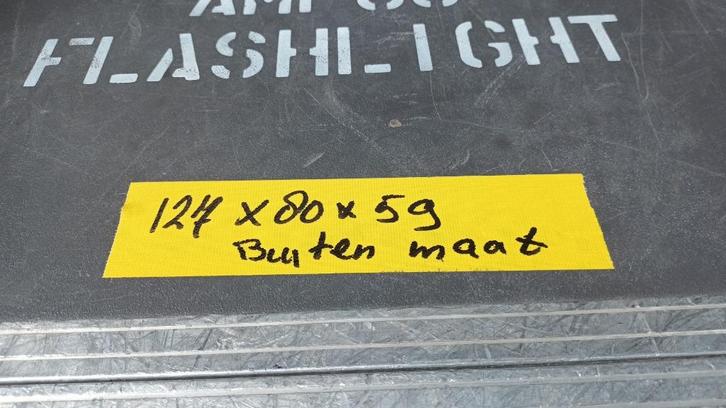 FLASHLIGHT
127 x 80 x 59
Buiten maat